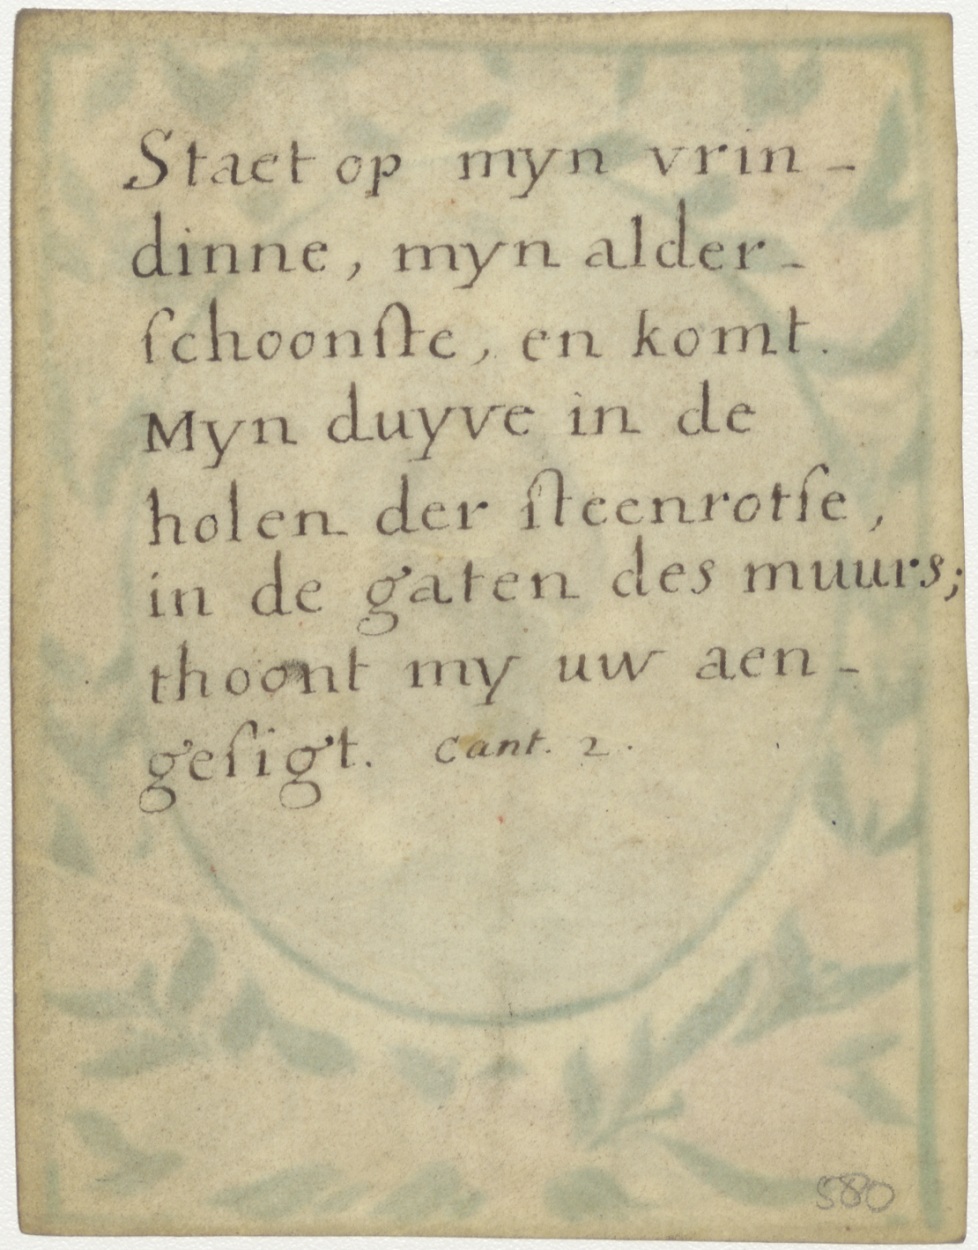 Staet op myn vrin-
dinne, myn alder-
ſchoonſte, en komt.
Myn duyve in de
holen der ſteenrotſe,
in de gaten des muurs;
thoont my uw aen-
geſigt. Cant. 2.
580